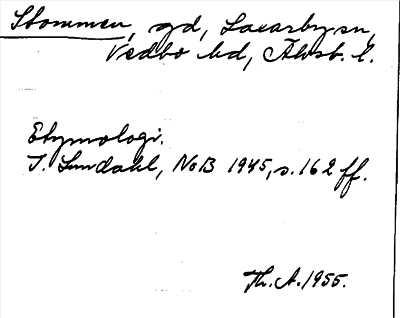 Stommen, gd, Laxarby sn,
Vedbo hd, Älvsb. l.
Etymologi.
I. Lundahl, NoB 1945, s. 162 ff.
Th. A. 1955.